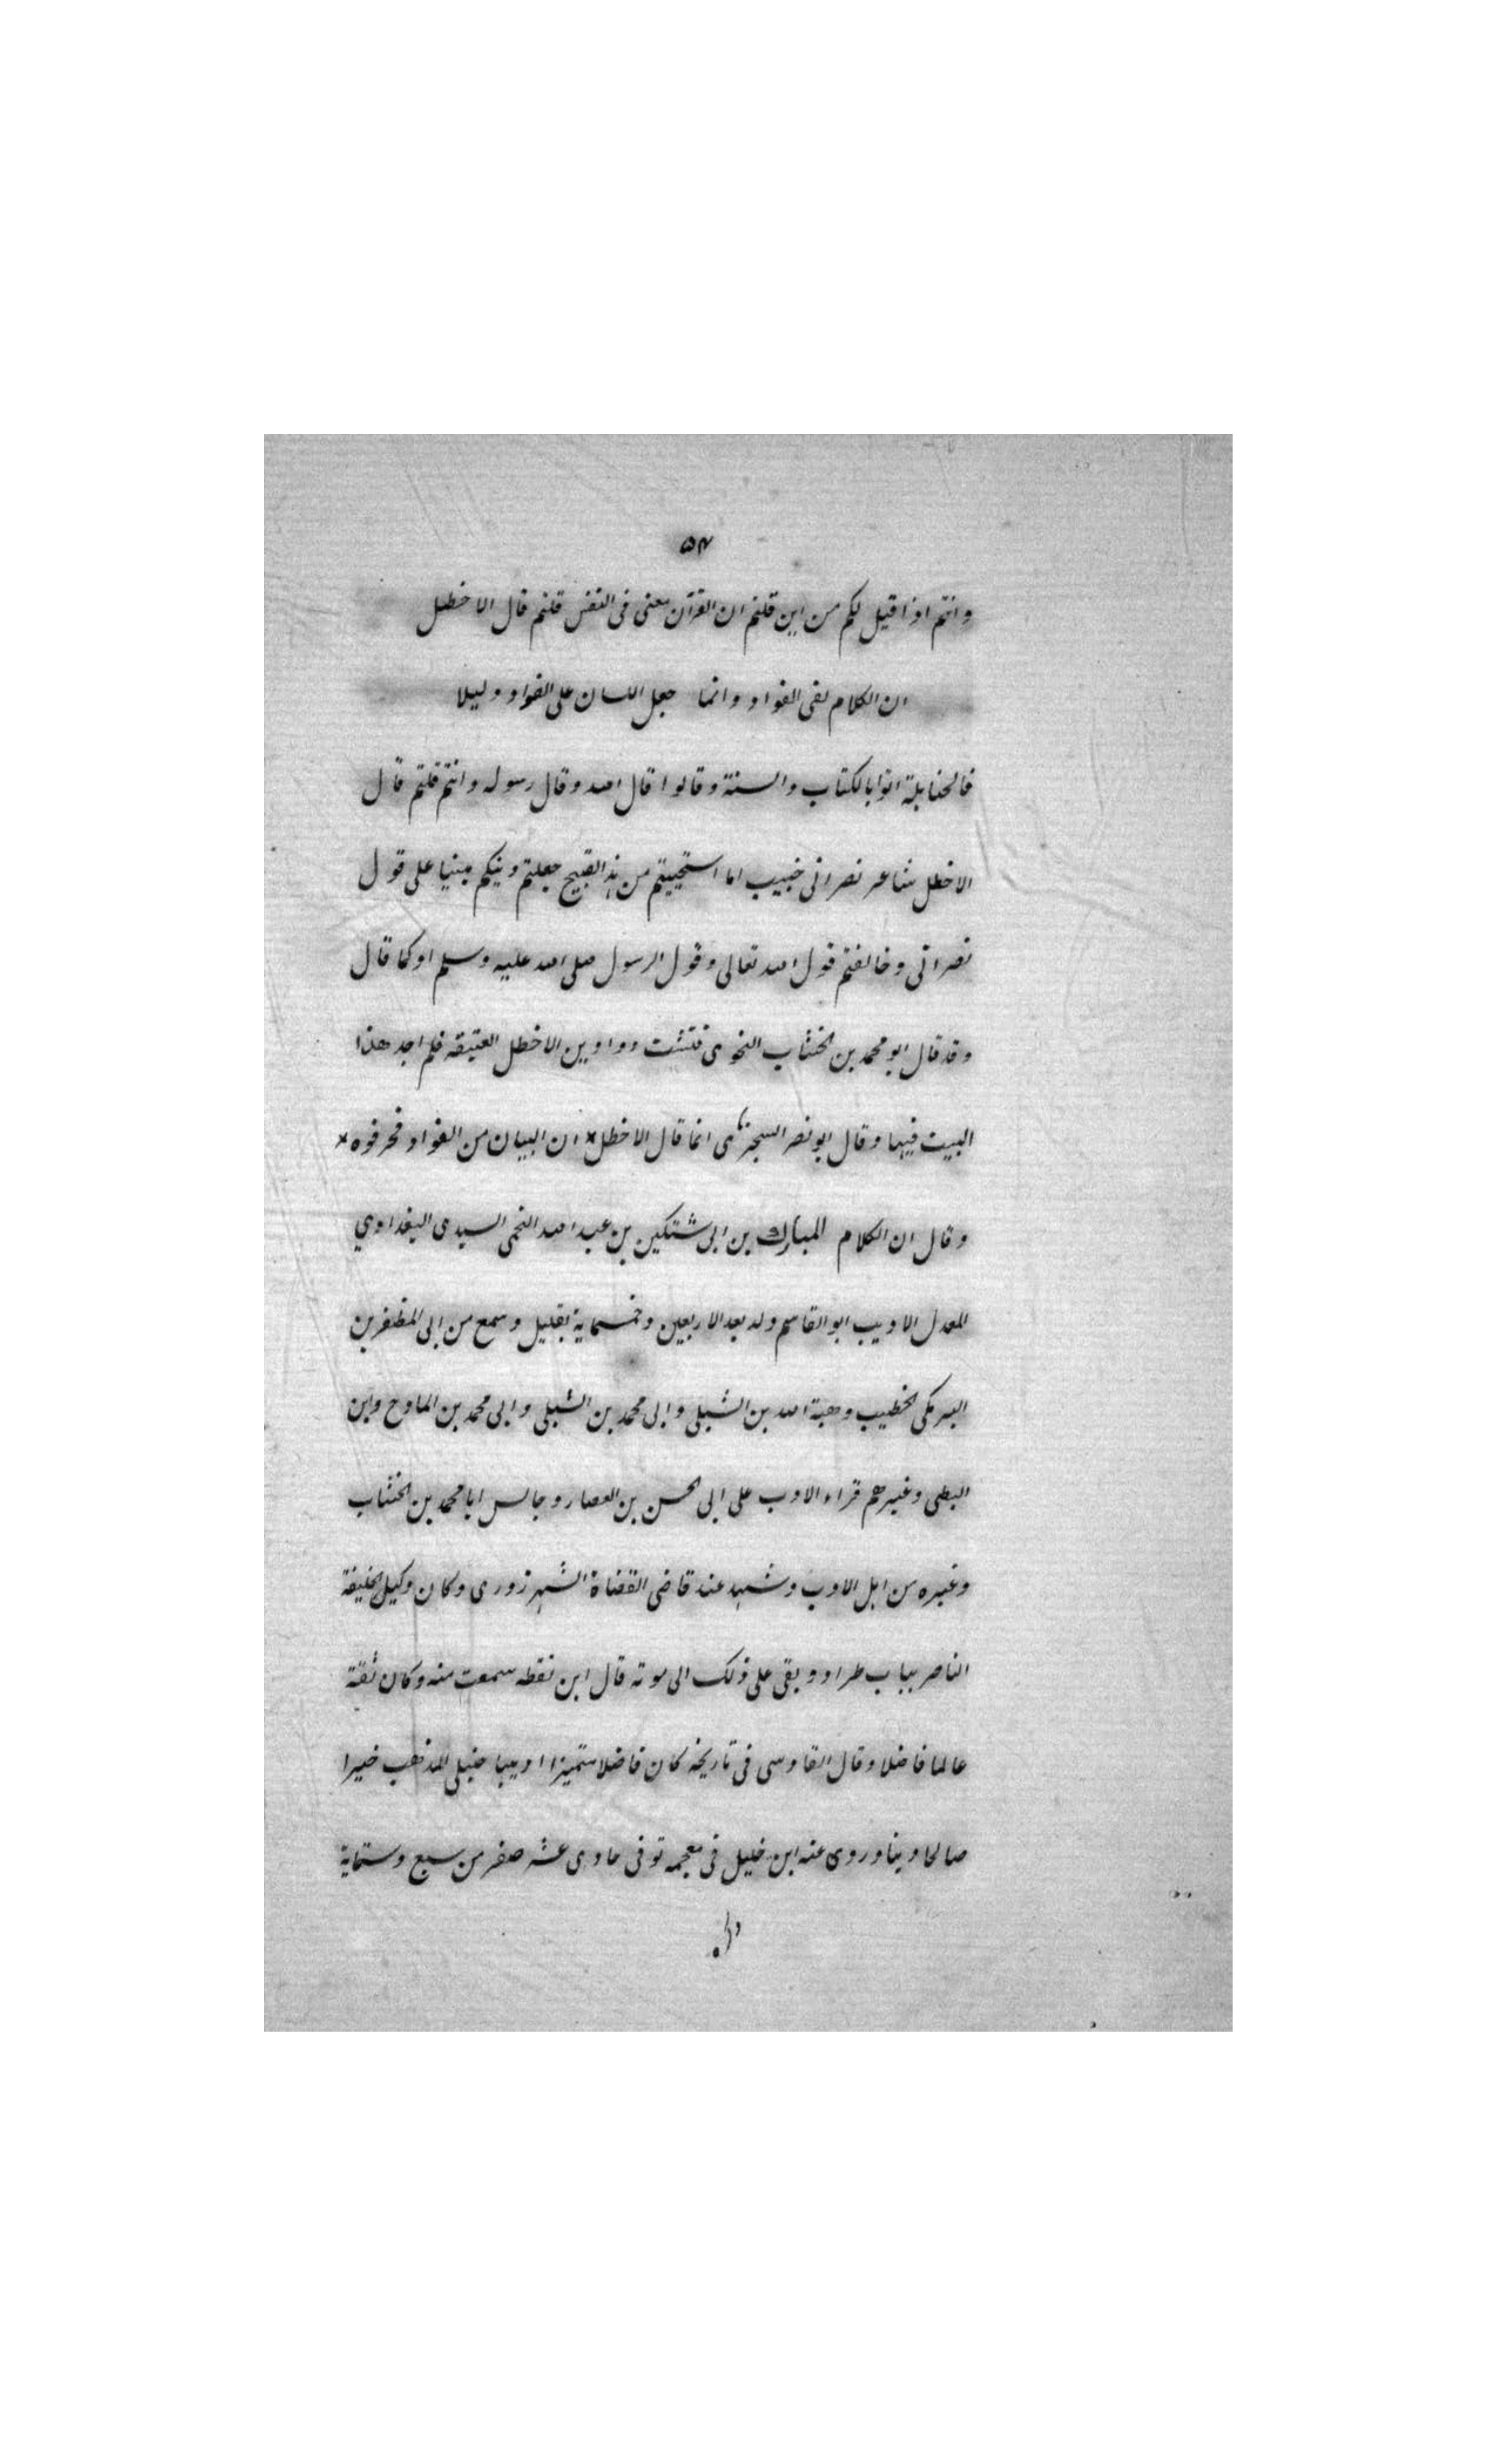 ٥٣
وانتم اذا قيل لكم من اين قلتم ان القرآن معنى فى النفس قلتم قال الاخطل
ان الكلام لفى الفواد وانما جعل اللسان على الفواد دليلا
فالحنابلة اتوا بالكتاب والسنة وقالوا قال الله وقال رسوله وانتم قلتم قال
الاخطل شاعر نصرانى خبيب اما استحييتم من هذا القبيح جعلتم دينكم مبنيا على قول
نصرانى وخالفتم قول الله تعالى وقول الرسول صلى الله عليه وسلم او كما قال
وقد قال ابو محمد بن الخشاب النحوى فتشت دواوين الاخطل العتيقه فلم اجد هذا
البيت فيها وقال ابو نصر السجزى انما قال الاخطل * ان البيان من الفواد فحرفوه *
وقال ان الكلام المبارك بن ابى شتكين بن عبد الله النجمى السيدى البغدادي
المعدل الاديب ابو القاسم ولد بعد الاربعين وخمسماية بقليل وسمع من ابى المظفر بن
البرمكى الخطيب وهبة الله بن الشبلى وابى محمد بن الشبلى وابى محمد بن المادح وابن
البطى وغيرهم قراء الادب على ابى الحسن بن العصار وجالس ابا محمد بن الخشاب
وغيره من اهل الادب وشهد عند قاضى القضاة الشهرزورى وكان وكيل الخليفة
الناصر بباب طراد وبقى على ذلك الى موته قال ابن نقطه سمعت منه وكان ثقة
عالما فاضلا وقال القادسى فى تاريخه كان فاضلا متميزا اديبا حنبلى المذهب خيرا
صالحا دينا وروى عنه ابن خليل فى معجمه توفى حادى عشر صفر من سبع وستماية